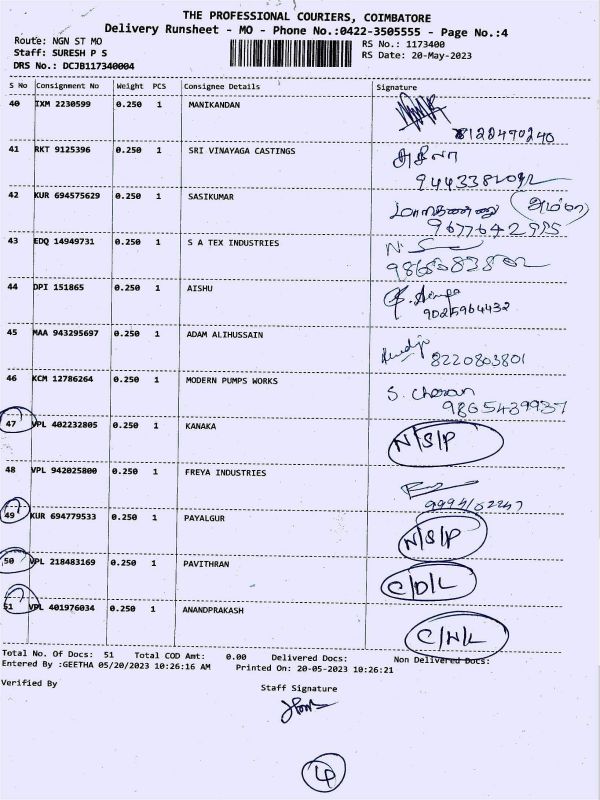 THE PROFESSIONAL COURIERS, COIMBATORE
Delivery Runsheet - MO - Phone No.:0422-3505555 - Page No.:4
Route: NGN ST MO RS No.: 1173400
Staff: SURESH P S RS Date: 20-May-2023
DRS No.: DCJB117340004
S No Consignment No Weight PCS Consignee Details Signature
40 IXM 2230599 0.250 1 MANIKANDAN
8122490240
41 RKT 9125396 0.250 1 SRI VINAYAGA CASTINGS அகிலா
42 KUR 694575629 0.250 1 SASIKUMAR
9677642985
43 EDQ 14949731 0.250 1 S A TEX INDUSTRIES
44 DPI 151865 0.250 1 AISHU
9025964432
45 MAA 943295697 0.250 1 ADAM ALIHUSSAIN
8220803801
46 KCM 12786264 0.250 1 MODERN PUMPS WORKS S. Cheran
9865439937
47 VPL 402232805 0.250 1 KANAKA N/S/P
48 VPL 942025800 0.250 1 FREYA INDUSTRIES
49 KUR 694779533 0.250 1 PAYALGUR N/S/P
50 VPL 218483169 0.250 1 PAVITHRAN C/D/L
51 VPL 401976034 0.250 1 ANANDPRAKASH C/N/L
Total No. Of Docs: 51 Total COD Amt: 0.00 Delivered Docs: Non Delivered Docs:
Entered By :GEETHA 05/20/2023 10:26:16 AM Printed On: 20-05-2023 10:26:21
Verified By
Staff Signature
4